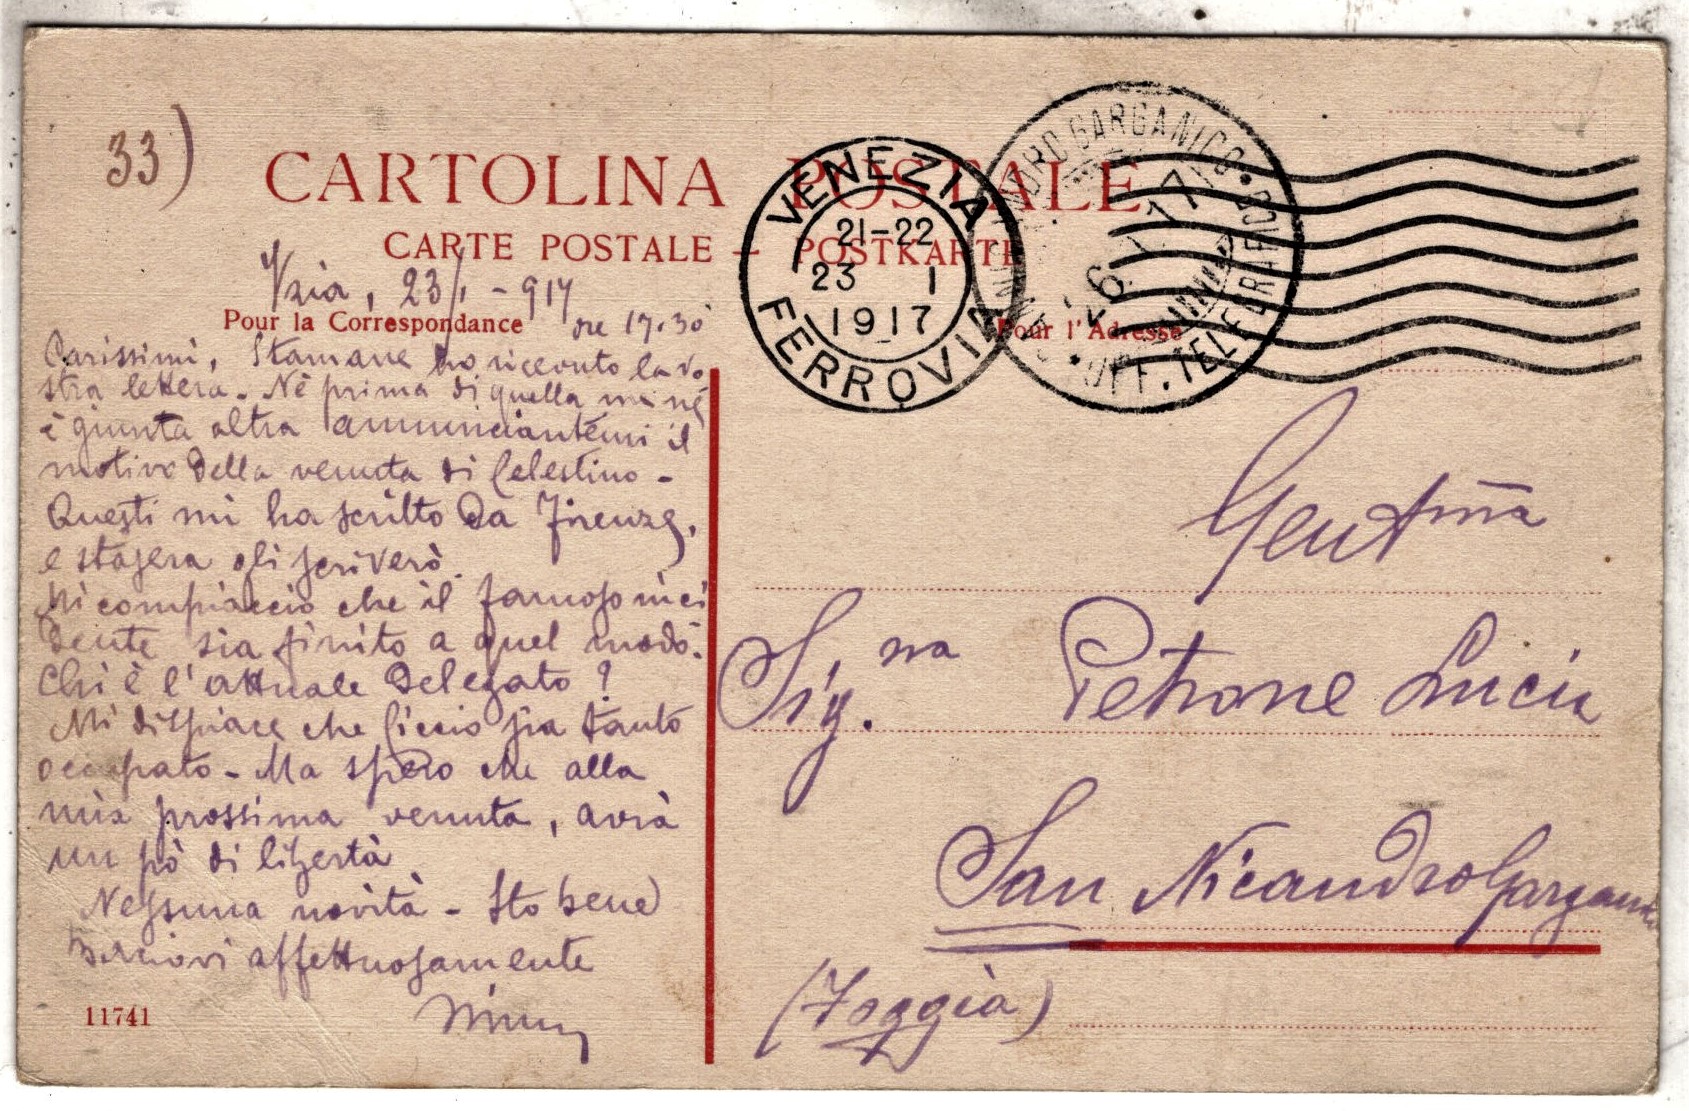 33)
CARTOLINA POSTALE
CARTE POSTALE — POSTKARTE
Vzia, 23/1 - 917
Pour la Correspondance
ore 17.30
Pour l'Adresse
VENEZIA
21-22
23 1
1917
FERROVIA
GARGANICO
UFF. TELEGRAFICO
Carissimi, Stamane ho ricevuto la vo
stra lettera. Nè prima di quella mi né
è giunta altra annunciantemi il
motivo della venuta di Celestino -
Questi mi ha scritto da Firenze,
e stasera gli scriverò.
Mi compiaccio che il famoso inci
dente sia finito a quel modo.
Chi è l'attuale Delegato?
Mi dispiace che Ciccio sia tanto
occupato - Ma spero che alla
mia prossima venuta, avrà
un pò di libertà
Nessuna novità - Sto bene
Baciovi affettuosamente
Gentma
Sig.na Petrone Lucia
San Nicandro Garganico
(Foggia)
11741